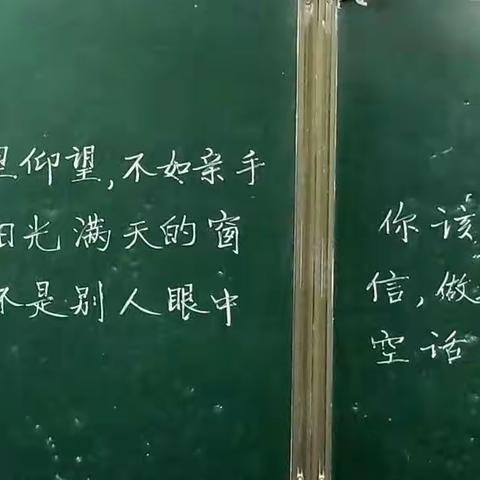 里仰望,不如亲手
阳光满天的窗
不是别人眼中
你该
信,做
空话